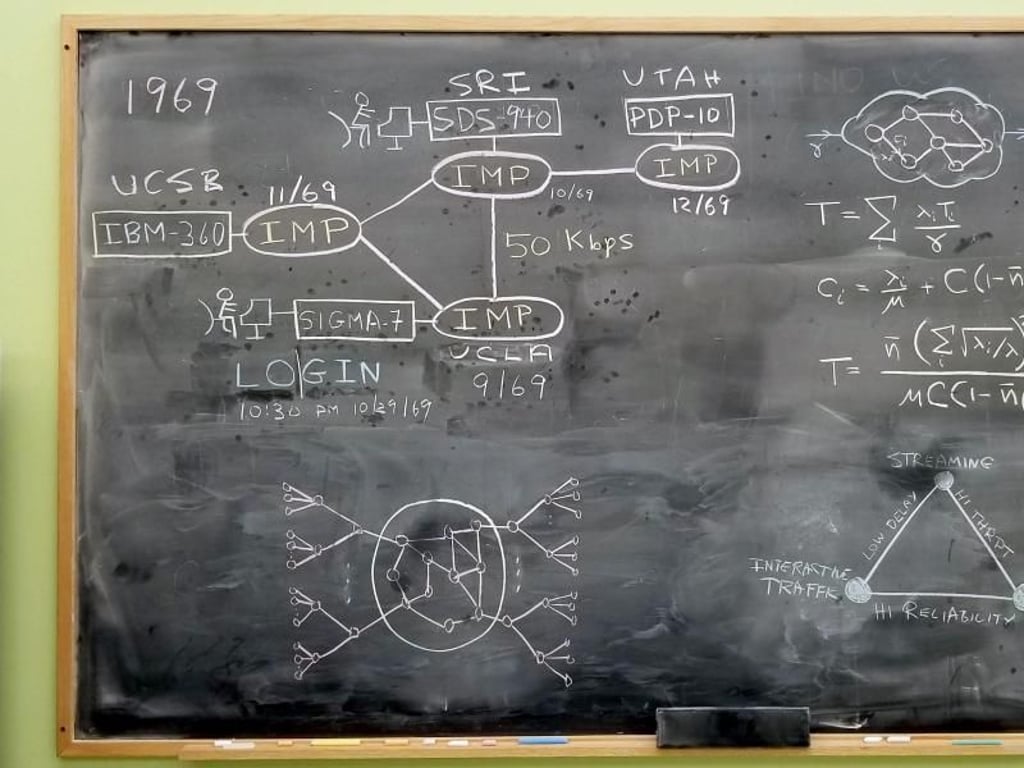 1969
SRI
SDS-940
IMP
UTAH
PDP-10
IMP
10/69
12/69
UCSB
11/69
IBM-360
IMP
50 Kbps
SIGMA-7
IMP
UCLA
9/69
LOGIN
10:30 PM 10/29/69
γ
T = Σ λiTi / γ
i
Ci = λi / μ + C(1-n̄
T = n̄ (Σ √λi/λ)
i
μC(1-n̄
STREAMING
LOW DELAY
HI THRPT
INTERACTIVE
TRAFFK
HI RELIABILITY